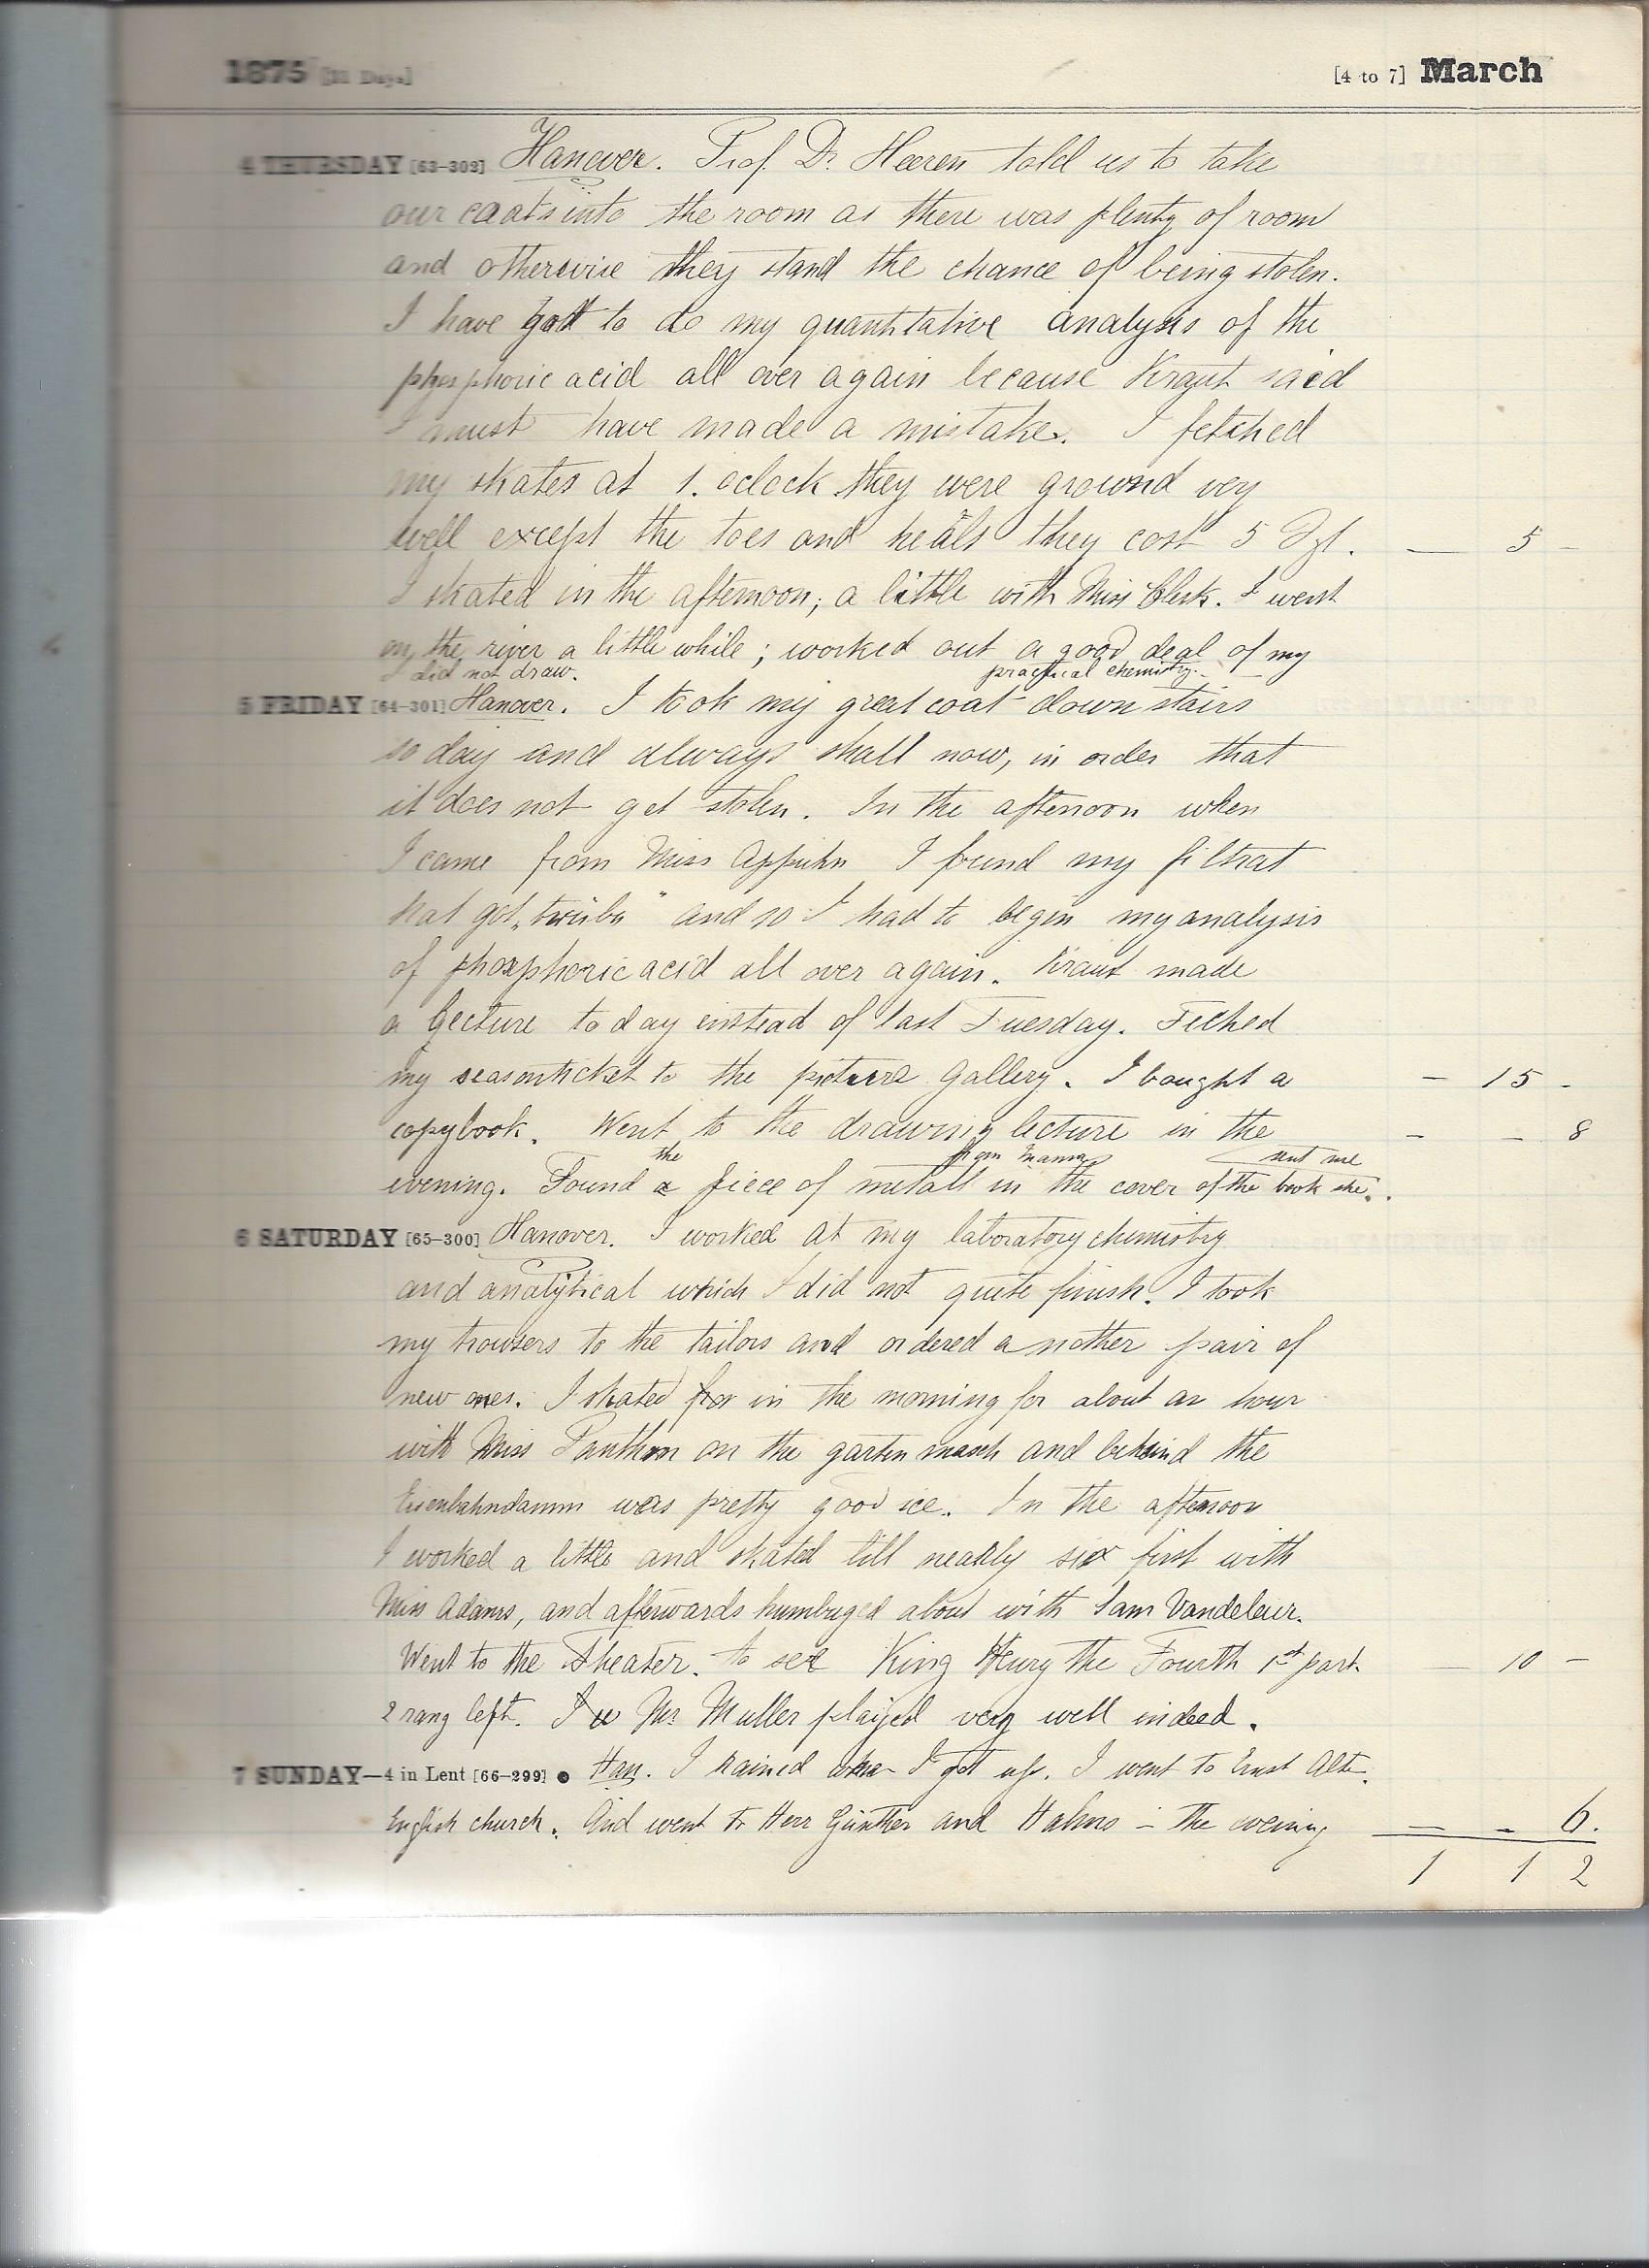 1875 [31 Days] [4 to 7] March
4 THURSDAY [63-302] Hanover. Prof. Dr. Heeren told us to take
our coats into the room as there was plenty of room
and otherwise they stand the chance of being stolen.
I have got to do my quantitative analysis of the
phosphoric acid all over again because Kraut said
I must have made a mistake. I fetched
my skates at 1. oclock they were ground very
well except the toes and heals they cost 5 — 5 —
I skated in the afternoon; a little with Miss Clerk. I went
on the river a little while; worked out a good deal of my
I did not draw. practical chemistry.
5 FRIDAY [64-301] Hanover. I took my great coat down stairs
to day and always shall now, in order that
it does not get stolen. In the afternoon when
I came from Miss Appuhn I found my filtrat
hat got „trübe" and so I had to begin my analysis
of phosphoric acid all over again. Kraut made
a lecture to day instead of last Tuesday. Feched
my seasonticket to the picture gallery. I bought a — 15 -
copybook. Went to the drawing lecture in the — – 8
the from Mama sent me
evening. Found a piece of metall in the cover of the book she.
6 SATURDAY [65-300] Hanover. I worked at my laboratory chemistry
and analytical which I did not quite finish. I took
my trousers to the tailors and ordered a nother pair of
new ones. I skated for in the morning for about an hour
with Miss Panthon on the garten masch and behind the
Eisenbahndamm was pretty good ice. In the afternoon
I worked a little and skated till nearly six first with
Miss Adams, and afterwards humbuged about with Sam Vandeleur.
Went to the Theater. to see King Henry the Fourth 1st part. — 10 —
2 rang left. Mr Muller played very well indeed.
7 SUNDAY—4 in Lent [66-299] ● Han. I rained when I got up. I went to Ernst Alte.
English church. And went to Herr Günther and Hahns – the evening — - 6.
1 1 2